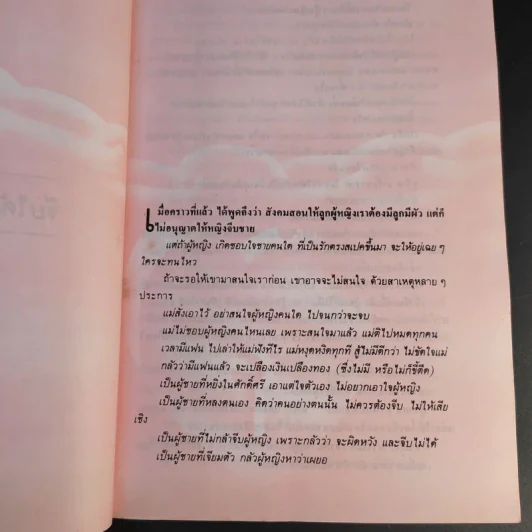 เมื่อคราวที่แล้ว ได้พูดถึงว่า สังคมสอนให้ลูกผู้หญิงเราต้องมีลูกมีผัว แต่ก็
ไม่อนุญาตให้หญิงจีบชาย
แต่ถ้าผู้หญิง เกิดชอบใจชายคนใด ที่เป็นรักตรงสเปคขึ้นมา จะให้อยู่เฉย ๆ
ใครจะทนไหว
ถ้าจะรอให้เขามาสนใจเราก่อน เขาอาจจะไม่สนใจ ด้วยสาเหตุหลาย ๆ
ประการ
แม่สั่งเอาไว้ อย่าสนใจผู้หญิงคนใด ไปจนกว่าจะจบ
แม่ไม่ชอบผู้หญิงคนไหนเลย เพราะสนใจมาแล้ว แม่ติไปหมดทุกคน
เวลามีแฟน ไปเล่าให้แม่ฟังทีไร แม่หงุดหงิดทุกที สู้ไม่มีดีกว่า ไม่ขัดใจแม่
กลัวว่ามีแฟนแล้ว จะเปลืองเงินเปลืองทอง (ซึ่งไม่มี หรือไม่ก็ขี้ตืด)
เป็นผู้ชายที่หยิ่งในศักดิ์ศรี เอาแต่ใจตัวเอง ไม่อยากเอาใจผู้หญิง
เป็นผู้ชายที่หลงตนเอง คิดว่าคนอย่างตนนั้น ไม่ควรต้องจีบ ไม่ให้เสีย
เชิง
เป็นผู้ชายที่ไม่กล้าจีบผู้หญิง เพราะกลัวว่า จะผิดหวัง และจีบไม่ได้
เป็นผู้ชายที่เจียมตัว กลัวผู้หญิงหาว่าเผยอ